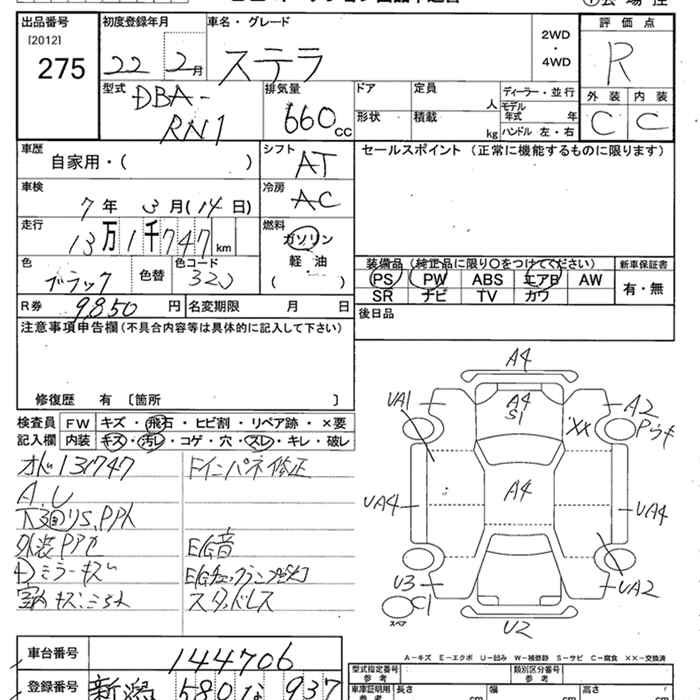 出品番号 初度登録年月 車名・グレード 2WD・4WD 評価点
[2012] 275 22 2月 ステラ R
型式 DBA-RN1 排気量 660cc ドア 形状 定員 人 積載 kg ディーラー・並行 モデル年式 年 ハンドル 左・右 外装 内装
C C
車歴 自家用・( ) シフト AT セールスポイント (正常に機能するものに限ります)
車検 7年3月(14日) 冷房 AC
走行 13万1千747km 燃料 ガソリン
色 ブラック 色替 色コード 320 軽・油 ( )
装備品 (純正品に限り○をつけてください) 新車保証書
PS PW ABS エアB AW 有・無
SR ナビ TV カワ
R券 9,850円 名変期限 月 日 後日品
注意事項申告欄(不具合内容等は具体的に記入して下さい)
修復歴 有 〔箇所 〕
検査員 FW キズ・飛石・ヒビ割・リペア跡・×要
記入欄 内装 キズ・汚レ・コゲ・穴・スレ・キレ・破レ
オド131747 Fインパネ修正
A.U
外装PP E/G音
ミラーキズ E/Gチェックランプ
室内キズ スタッドレス
A4
UA1 A4 S1 A2
XX Pウキ
UA4 A4 UA4
U3 UA2
C1 スペア U2
A-キズ E-エクボ U-凹み W-補修跡 S-サビ C-腐食 XX-交換済
車台番号 144706
型式指定番号 参考 類別区分番号 参考
登録番号 新潟 580 な 937
車庫証明用 参考 長さ 幅 高さ